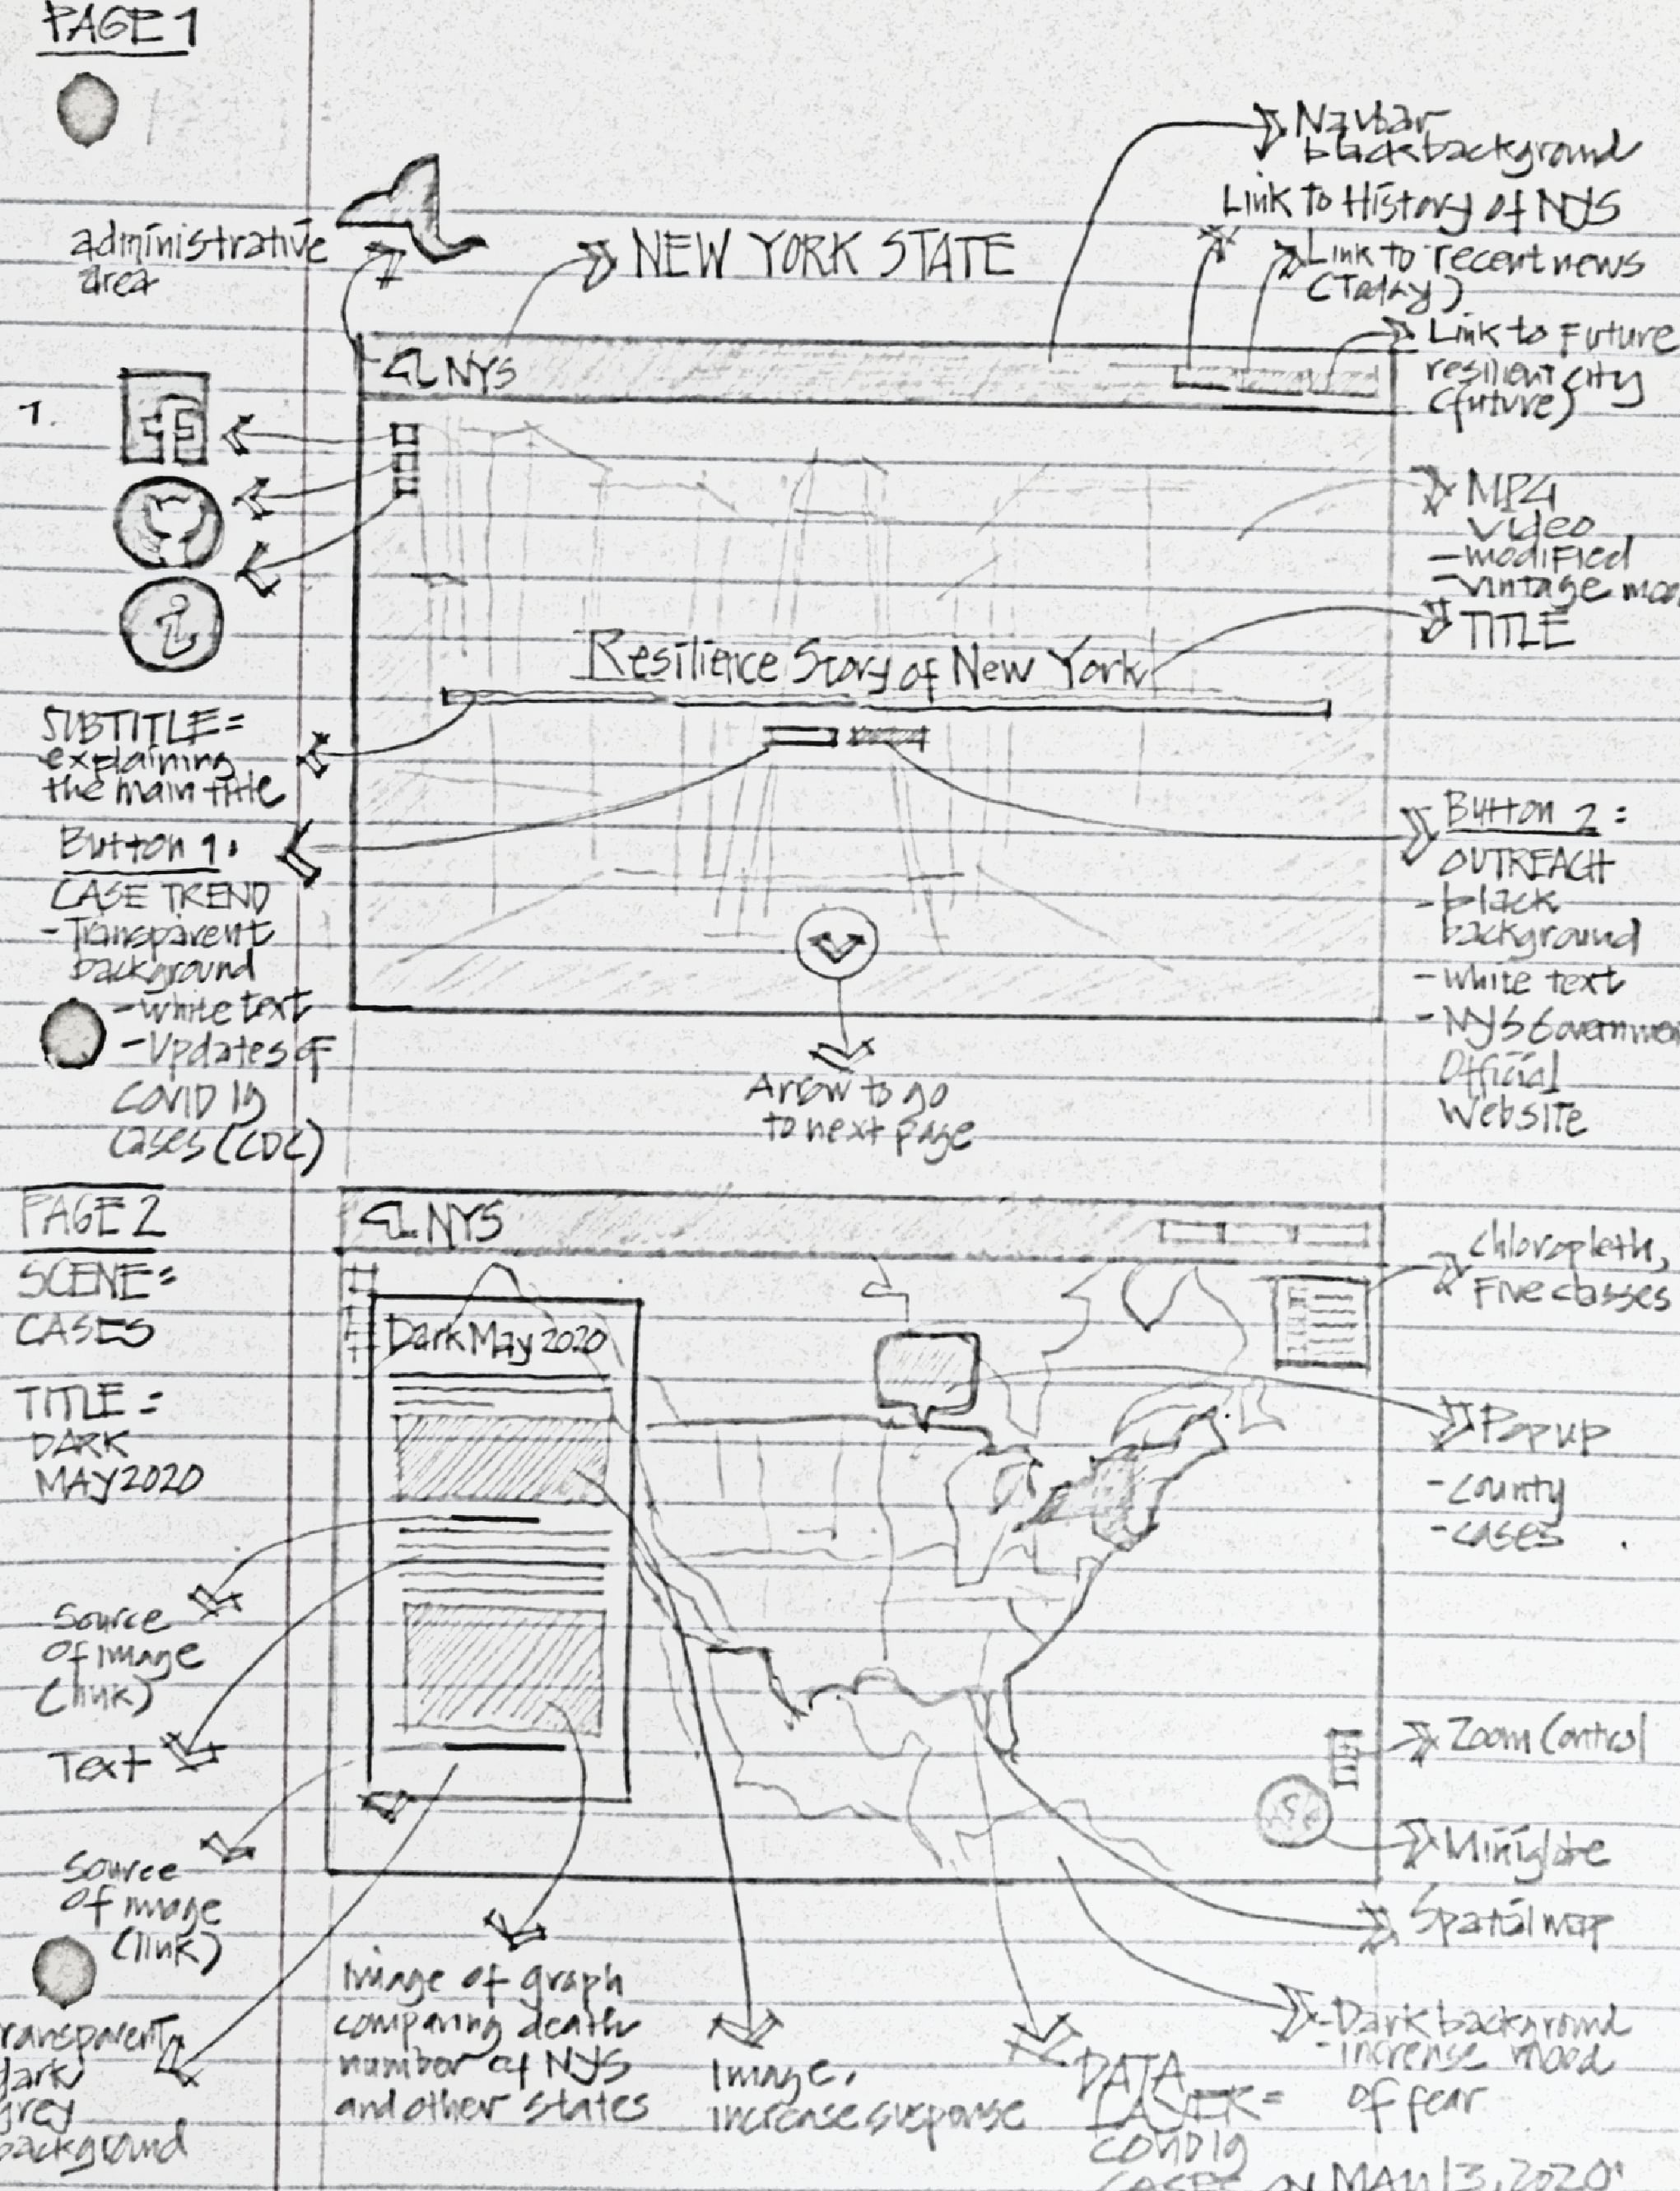 PAGE 1
administrative
area
NEW YORK STATE
Navbar
black background
Link to History of NYS
Link to recent news
(Today)
Link to Future
resilient city
(future)
NYS
1.
i
MP4
video
- modified
- vintage
TITLE
Resilience Story of New York
SUBTITLE=
explaining
the main title
Button 1:
CASE TREND
- Transparent
background
- white text
- Updates of
COVID 19
cases (CDC)
Button 2:
OUTREACH
- black
background
- white text
- NYS
Official
Website
Arrow to go
to next page
PAGE 2
SCENE=
CASES
TITLE=
DARK
MAY 2020
NYS
Dark May 2020
Chloropleth,
Five classes
Popup
- county
- cases
Source
of image
(link)
Text
Source
of image
(link)
Zoom Control
Miniglobe
Spatial map
ransparent
dark
grey
background
Image of graph
comparing death
number of NYS
and other states
Image,
increase suspense
DATA
LAYER=
- Dark background
- increase mood
of fear
MAY 13, 2020